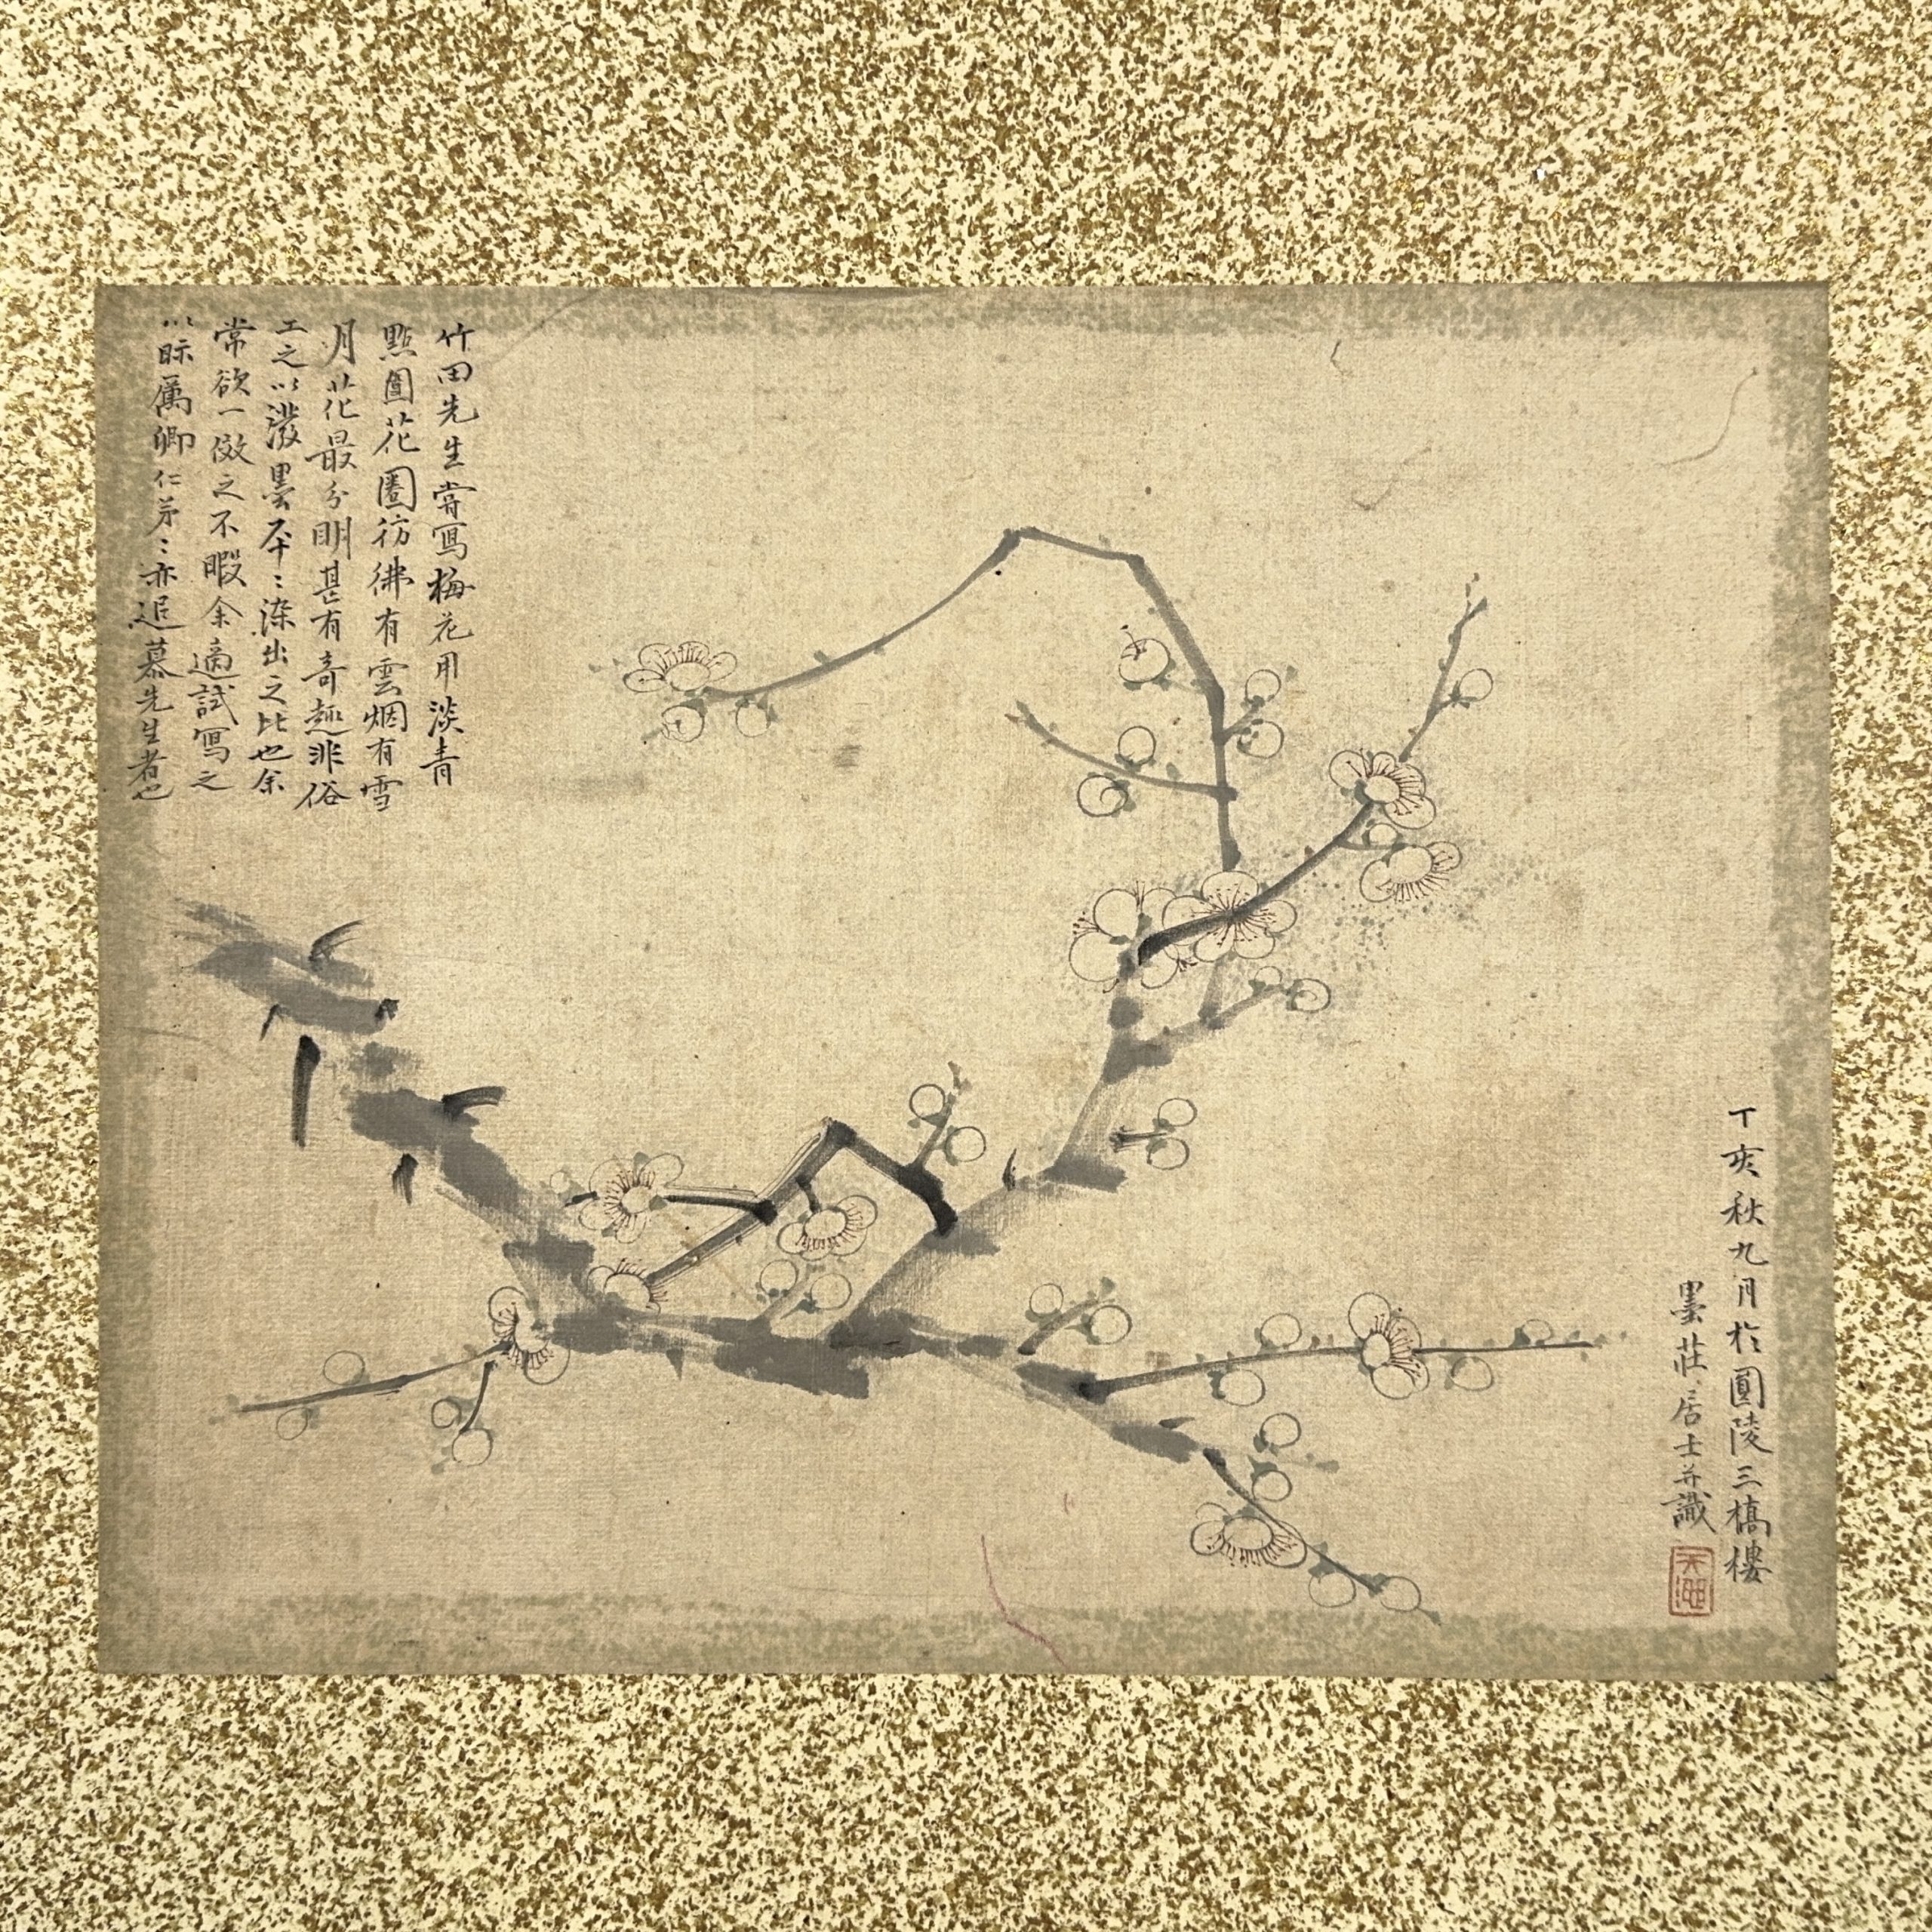 竹田先生甞寫梅花用淡青
點圓花圏彷彿有雲烟有雪
月花最分明甚有奇趣非俗
工之以潑墨夲〻染出之比也余
常欲一倣之不暇余適試寫之
以眎厲卿仁弟〻亦追慕先生者也
丁亥秋九月於圓陵三槁樓
墨荘居士并識